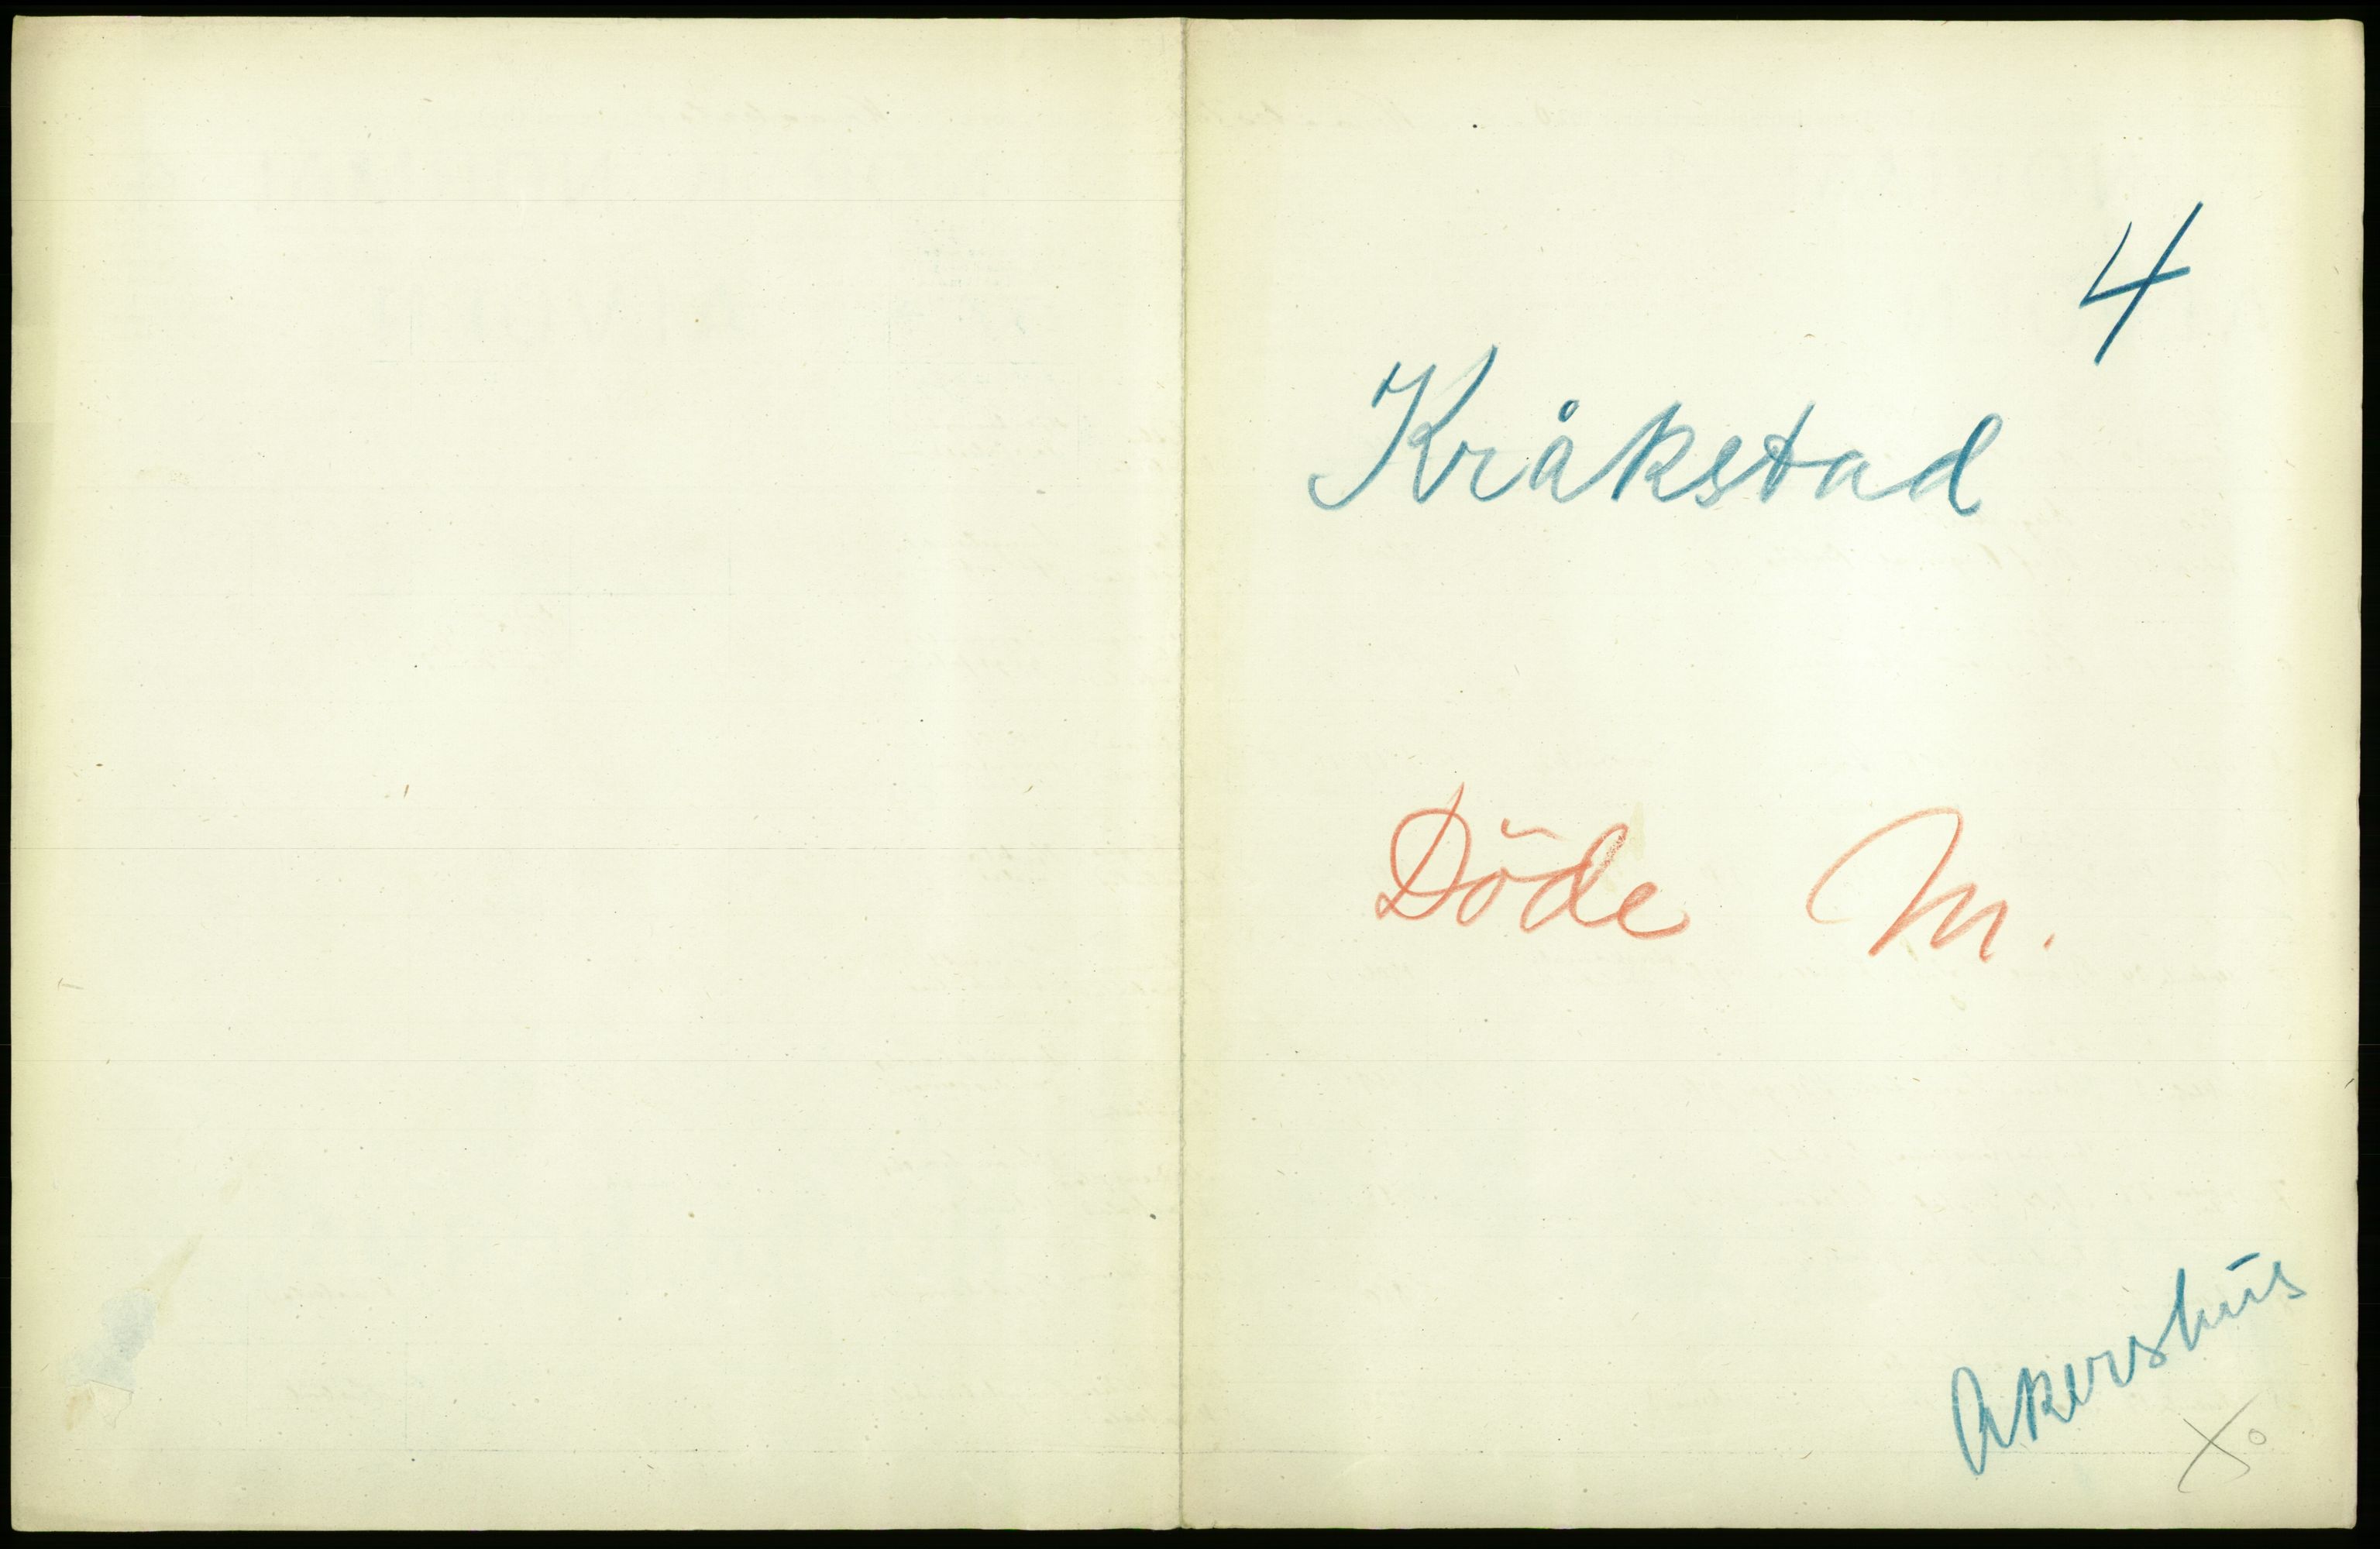 4
Kråkstad
Döde M.
Akershus